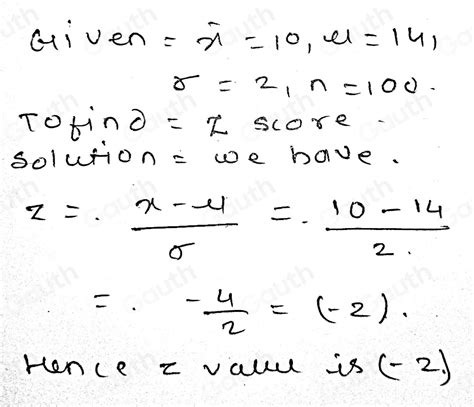 Given = x̄ = 10, μ = 14,
σ = 2, n = 100.
To find = Z score.
Solution = we have.
z = . x - μ / σ = . 10 - 14 / 2.
= . - 4 / 2 = (-2).
Hence z value is (-2)